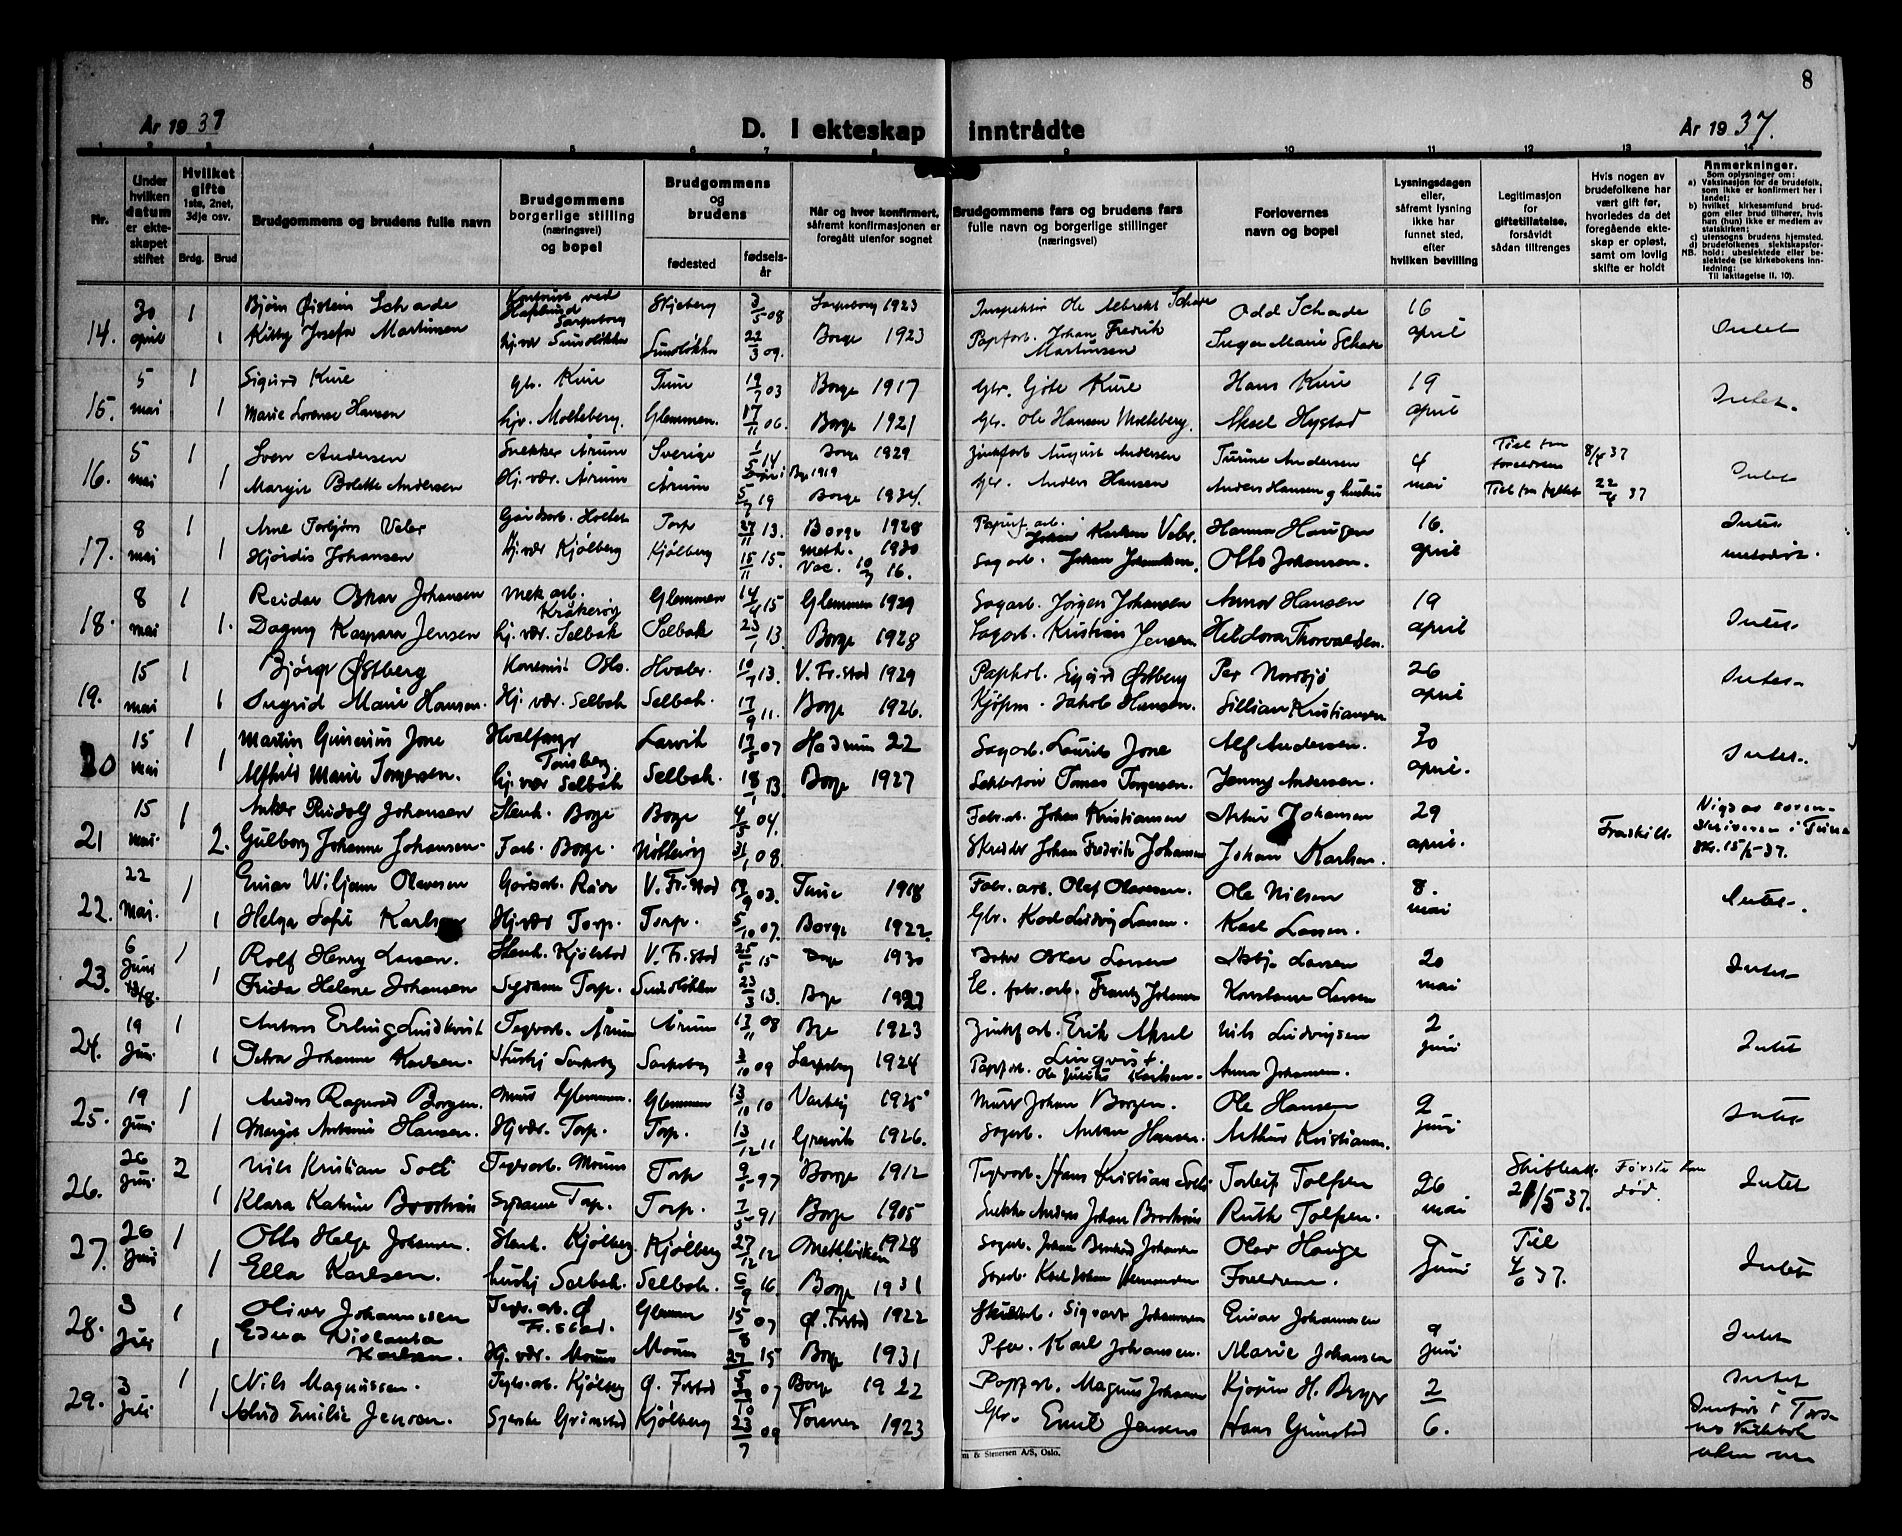 8
År 1937
D. I ekteskap inntrådte
År 1937.
1 2 3 4 5 6 7 8 9 10 11 12 13 14
Nr.
Under hvilken datum er ekteskapet stiftet
Hvilket gifte 1ste, 2net, 3dje osv.
Brdg. Brud
Brudgommens og brudens fulle navn
Brudgommens borgerlige stilling (næringsvei) og bopel
Brudgommens og brudens
fødested
fødselsår
Når og hvor konfirmert, såfremt konfirmasjonen er foregått utenfor sognet
Brudgommens fars og brudens fars fulle navn og borgerlige stillinger (næringsvei)
Forlovernes navn og bopel
Lysningsdagen eller, såfremt lysning ikke har funnet sted, efter hvilken bevilling
Legitimasjon for giftetillatelse, forsåvidt sådan tiltrenges
Hvis nogen av brudefolkene har vært gift før, hvorledes da det foregående ekteskap er opløst, samt om lovlig skifte er holdt
Anmerkninger.
Som oplysninger om:
a) Vaksinasjon for de brudefolk, som ikke er konfirmert her i landet:
b) hvilket kirkesamfund brudgom eller brud tilhører, hvis han (hun) ikke er medlem av statskirken;
c) utensogns brudens hjemsted.
d) brudefolkenes slektskapsforhold: ubeslektede eller beslektede (se kirkebokens innledning:
NB. Til iakttagelse II. 10).
14. 30 april 1 Bjørn Øistein Schade Kontorist ved Hafslund Sarpsborg Skjeberg 3/5 08 Sarpsborg 1923 Inspektør Ole Albrekt Schade Odd Schade 16 april Intet
1 Kitty Josefa Martinsen Hj. vær Sundløkka Sundløkka 22/3 09. Borge 1923 Papfarb. Johan Fredrik Martinsen Marie Schade
15. 5 mai 1 Sigurd Kure Gbr. Kure Tune 19/7 03 Borge 1917 Gbr. Kure Hans Kure 19 april Intet.
1 Marie Lovense Hansen Hjv. Molteberg. Glemmen. 17/11 06. Borge 1921 Gbr. Ole Hansen Molteberg. Aksel Hystad
16. 5 mai 1 Sven Andersen Snekker Årum Sverige 1/5 14 Borge 1929 Zinkfarb. August Andersen Turine Andersen 4 mai Till. fra foreldrene 8/4 37 Intet
1 Margit Bolette Andersen Hj. vær. Årum Årum 5/7 19 Borge 1934. Gbr. Anders Hansen Anders Hansen og hustru 22/4 37
17. 8 mai 1 Arne Torbjørn Veber Torp 27/11 13. Borge 1928 Papirf. arb. Johan Karlsen Veber. Hanna Haugen 16. april Intet
1 Hjørdis Johansen Hj. vær Kjølberg Kjølberg 15/11 15. Meth. 1930 Vac. 10/7 16. Sagarb. Johan Johansen. Otto Johansen. metodist.
18. 8 mai 1 Reidar Oskar Johansen Mek arb. Kråkerøy Glemmen 14/4 15 Glemmen 1929 Sagarb. Jørgen Johansen Hansen 19 april Intet.
1. Dagny Kaspara Jensen Hj. vær. Selbak Selbak 23/1 13. Borge 1928 Sagarb. Kristian Jensen Thorvaldsen.
19. 15 mai 1 Bjørge Østberg Kontorist Oslo. Hvaler. 10/7 13. V. Fr.stad 1929 Papfarb. Sigurd Østberg Per Nordsjø 26 april Intet.
1 Ingrid Marie Hansen. Hj. vær. Selbak Selbak. 17/9 11. Borge 1926. Kjøpm. Jakob Hansen. Lillian Kristiansen
20 15 mai 1 Martin Gunerius Jone Hvalfanger Tønsberg. Larvik 19/5 07 Hedrum 22 Sagarb. Laurits Jone Alf Andersen. 30 april. Intet.
1 Alfhild Marie Torgersen. Hj. vær Selbak Selbak. 18/1 13. Borge 1927 Tomas Torgersen. Jenny Andersen.
21 15 mai. 1 Anker Rudolf Johansen Stenh. Borge Borge 4/5 04. Fabr.arb. Johan Kristiansen Artur Johansen 29 april. Fraskilt. Vigd av sorenskriveren i Tune Skr. 15/5 37.
2. Gulborg Johanne Johansen. Farb. Borge. Nøtterøy 31/1 08. Skredder Johan Fredrik Johansen Johan Karlsen.
22. 22 Mai. 1 Einar Wiljam Olavesen Gårdsarb. Råde V. Fr.stad 19/9 02. Tune 1918 Fabr. arb. Olaf Olavesen. Ole Nilsen 8. mai Intet.
1 Helga Sofie Karlsen Hj.vær Torp. Torp. 5/10 07. Borge 1922. Gbr. Karl Ludvig Larsen. Karl Larsen.
23. 6 Juni 1 Rolf Henry Larsen. Stenh. Kjølstad V. Fr.stad 25/5 15 1930 Oskar Larsen Larsen 20 mai Intet
1 Frida Helene Johansen Sydame Torp. Sundløkka 23/3 13. Borge Frantz Johansen Konstanse Larsen
24. 19 Juni 1 Anton Erling Lindkvist Teglv.arb. Årum Årum 13/11 08 Bge 1923 Zinkf arb. Erik Aksel Linqvist. Nils Ludvigsen 2 juni Intet
1 Petra Johanne Karlsen. Hushj Sarpsborg Sarpsborg 3/10 09 Sarpsborg 1924 Papf.arb. Ole Julius Karlsen. Anna Johansen.
25. 19 Juni 1 Anders Ragnvald Borgen. Murer Glemmen. Glemmen 13/10 10 Varteig 1925 Murer Johan Borgen. Ole Hansen 2 juni Intet
1 Margit Antonie Hansen. Hj. vær. Torp. Torp. 13/12 11 Greåker 1926. Sagarb. Anton Hansen. Arthur Kristiansen.
26. 26 Juni 2 Nils Kristian Soli Teglv.arb. Moum Torp 97 Borge 1912 Teglv.arb. Hans Kristian Soli Torleif Tolfsen 26 mai Skifteatt. 21/5 37. Første kone død. Intet
1 Klara Katrine Brostrøm Sydame Torp. Torp. 7/5 91 Borge 1905 Snekker Anders Johan Brostrøm Ruth Tolfsen.
27. 26 Juni 1 Otto Helge Johansen. Stenh. Kjølberg Kjølberg 27/12 12 Methkirken 1928 Sagarb. Johan Bernhard Johansen Olav Hauge 9 Juni Till 4/6 37. Intet
1 Ella Karlsen. hushj Selbak. Selbak. 6/9 16 Borge 1931 Sagarb. Karl Johan Hermansen Foreldrene.
28. 3 Juli 1 Oliver Johannesen Teglv.arb. Ø Fr.stad. Glemmen 15/8 07 Ø. Frstad 1922 Sigvart Johannesen Einar Johannesen 9 juni Intet
1 Edna Karlsen. Hj. vær. Moum Moum 27/ 15 Borge 1931 Karl Johansen. Marie Johansen
29. 3 juli 1 Nils Magnussen. Teglv.arb. Kjølberg Ø. Frstad 07 Borge 1922 Papf.arb. Magnus Johansen Kjøpm H. Berger 2/6. Intet
1 Astrid Emilie Jensen. Syerske Grimstad Kjølberg 23/7 09 Torsnes 1923 Gbr. Emil Jensen Hans Grimstad Innført i Torsnes kirkebok uten nr
& Stenersen A/S, Oslo.